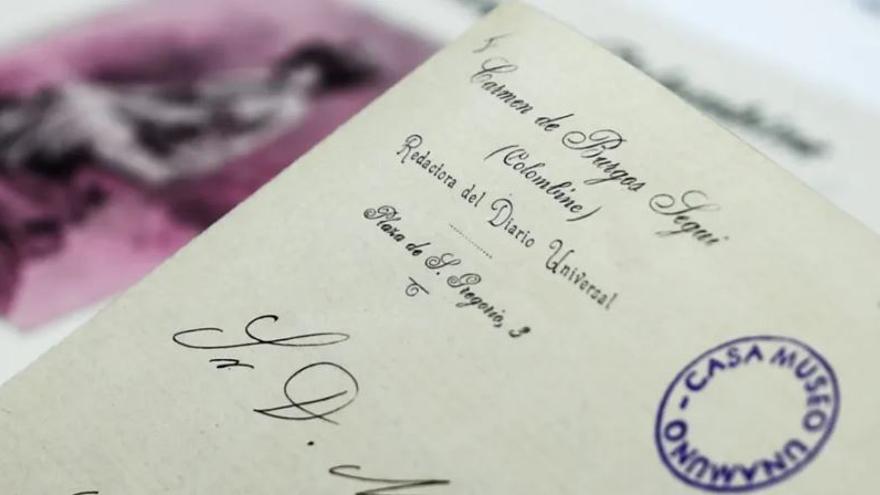 Carmen de Burgos Segui
(Colombine)
Redactora del Diario Universal
Plaza de S. Gregorio, 3
Sr
D.
- CASA MUSEO UNAMUNO